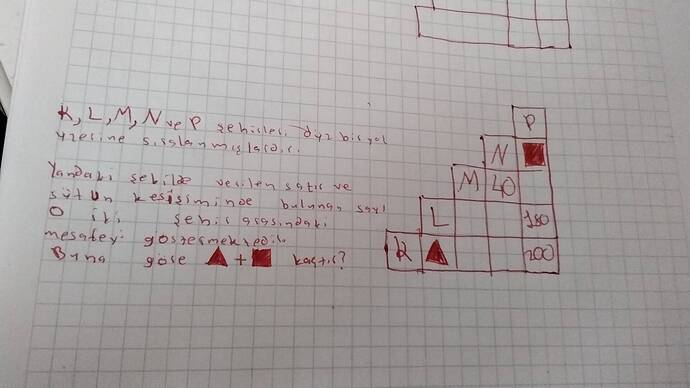 K, L, M, N ve P şehirleri düz bir yol
üzerine sıralanmışlardır.
Yandaki şekilde verilen satır ve
sütun kesişiminde bulunan sayı
O iki şehir arasındaki
mesafeyi göstermektedir.
Buna göre + kaçtır?
P
N
M 40
L 180
K 200